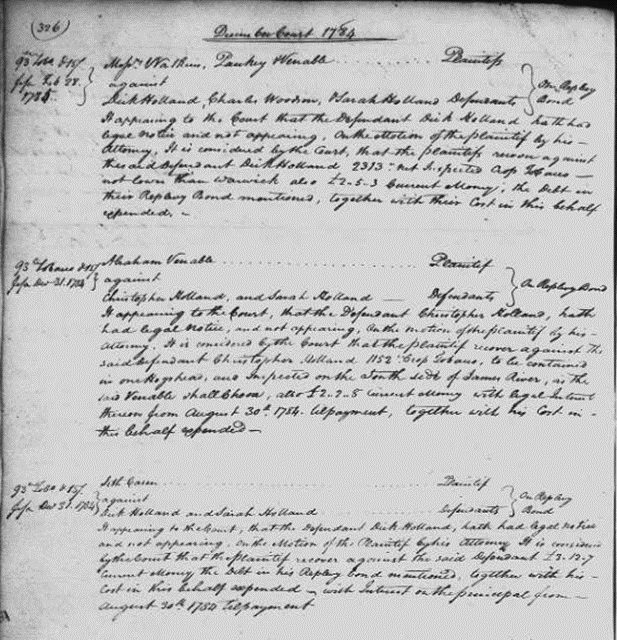 (326)
December Court 1784
Messrs Watkins, Venable Plaintifs
against
Dick Holland, Charles Woodson, & Sarah Holland Defendants } On Replevy Bond
It appearing to the Court that the Defendant Dick Holland hath had
legal Notice and not appearing, On the Motion of the plaintif by his
Attorney, It is considered by the Court, that the plaintifs recover against
the said Defendant Dick Holland 2313 Net Inspected Crop Tobacco
not lower than Warwick also £2-5-3 Current Money; the Debt in
their Replevy Bond mentioned, together with their Cost in this behalf
expended.
Abraham Venable Plaintif
against
Christopher Holland, and Sarah Holland Defendants } On Replevy Bond
It appearing to the Court, that the Defendant Christopher Holland, hath
had legal Notice, and not appearing, On the motion of the plaintif by his
Attorney. It is considered by the Court that the plaintif recover against the
said Defendant Christopher Holland 1152 Crop Tobacco, to be contained
in one Hogshead, and Inspected on the South side of James River, as the
said Venable shall Choose, also £2-2-5 Current Money with legal Interest
thereon from August 30th 1784. til payment, together with his Cost in
this behalf expended
Seth Plaintif
against
Dick Holland and Sarah Holland Defendants } On Replevy Bond
It appearing to the Court, that the Defendant Dick Holland, hath had legal notice
and not appearing, On the Motion of the Plaintif by his Attorney It is considered
by the Court that the plaintif recover against the said Defendant £3-12-7
Current Money the Debt in his Replevy bond mentioned, together with his
Cost in this behalf expended with Interest on the principal from
August 30th 1784 til payment